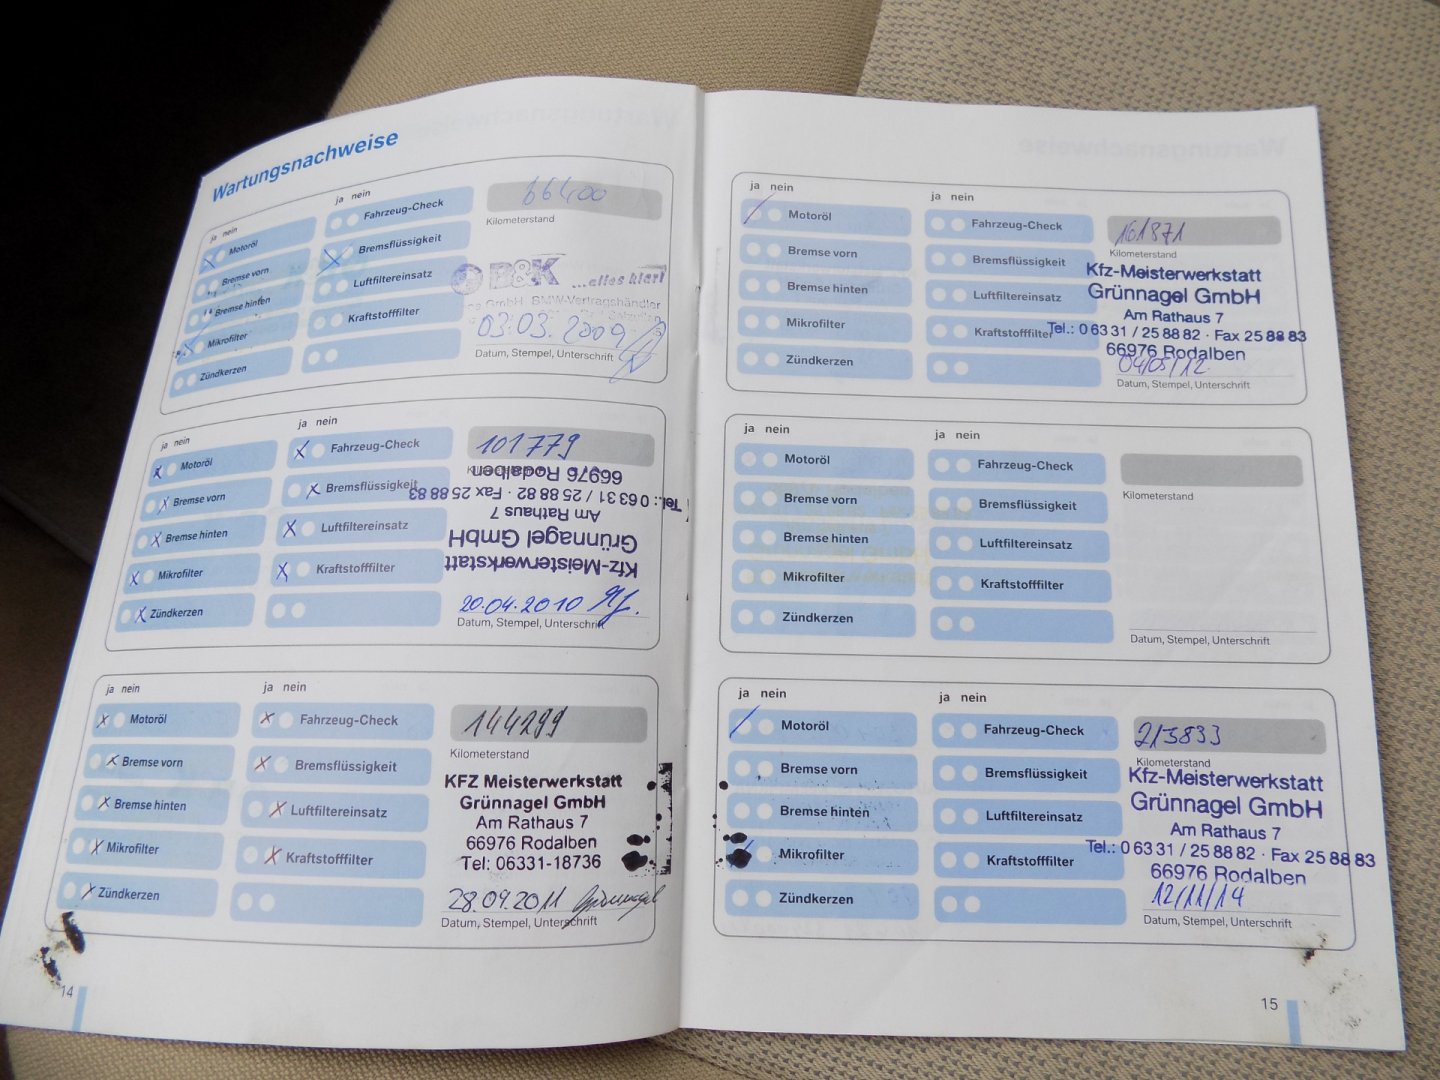 Wartungsnachweise
ja nein
ja nein
Motoröl
Bremse vorn
Bremse hinten
Mikrofilter
Zündkerzen
Fahrzeug-Check
Bremsflüssigkeit
Luftfiltereinsatz
Kraftstofffilter
66400
Kilometerstand
B&K ...alles klar!
GmbH BMW-Vertragshändler
03.03.2009
Datum, Stempel, Unterschrift
ja nein
ja nein
Motoröl
Bremse vorn
Bremse hinten
Mikrofilter
Zündkerzen
Fahrzeug-Check
Bremsflüssigkeit
Luftfiltereinsatz
Kraftstofffilter
101779
Kilometerstand
Kfz-Meisterwerkstatt
Grünnagel GmbH
Am Rathaus 7
Tel.: 0 63 31 / 25 88 82 · Fax 25 88 83
66976 Rodalben
20.04.2010
Datum, Stempel, Unterschrift
ja nein
ja nein
Motoröl
Bremse vorn
Bremse hinten
Mikrofilter
Zündkerzen
Fahrzeug-Check
Bremsflüssigkeit
Luftfiltereinsatz
Kraftstofffilter
144299
Kilometerstand
KFZ Meisterwerkstatt
Grünnagel GmbH
Am Rathaus 7
66976 Rodalben
Tel: 06331-18736
28.09.2011 Grünnagel
Datum, Stempel, Unterschrift
14
ja nein
ja nein
Motoröl
Bremse vorn
Bremse hinten
Mikrofilter
Zündkerzen
Fahrzeug-Check
Bremsflüssigkeit
Luftfiltereinsatz
Kraftstofffilter
161871
Kilometerstand
Kfz-Meisterwerkstatt
Grünnagel GmbH
Am Rathaus 7
Tel.: 0 63 31 / 25 88 82 · Fax 25 88 83
66976 Rodalben
04/05/12
Datum, Stempel, Unterschrift
ja nein
ja nein
Motoröl
Bremse vorn
Bremse hinten
Mikrofilter
Zündkerzen
Fahrzeug-Check
Bremsflüssigkeit
Luftfiltereinsatz
Kraftstofffilter
Kilometerstand
Datum, Stempel, Unterschrift
ja nein
ja nein
Motoröl
Bremse vorn
Bremse hinten
Mikrofilter
Zündkerzen
Fahrzeug-Check
Bremsflüssigkeit
Luftfiltereinsatz
Kraftstofffilter
215833
Kilometerstand
Kfz-Meisterwerkstatt
Grünnagel GmbH
Am Rathaus 7
Tel.: 0 63 31 / 25 88 82 · Fax 25 88 83
66976 Rodalben
12/11/14
Datum, Stempel, Unterschrift
15